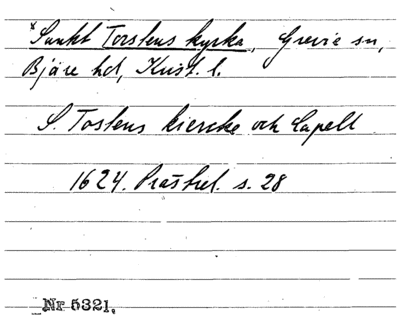 *Sankt Torstens kyrka, Grevie sn,
Bjäre hd, Krist. l.
S. Tostens kiercke och Capell
1624. Prästrel. s. 28
Nr 5321.